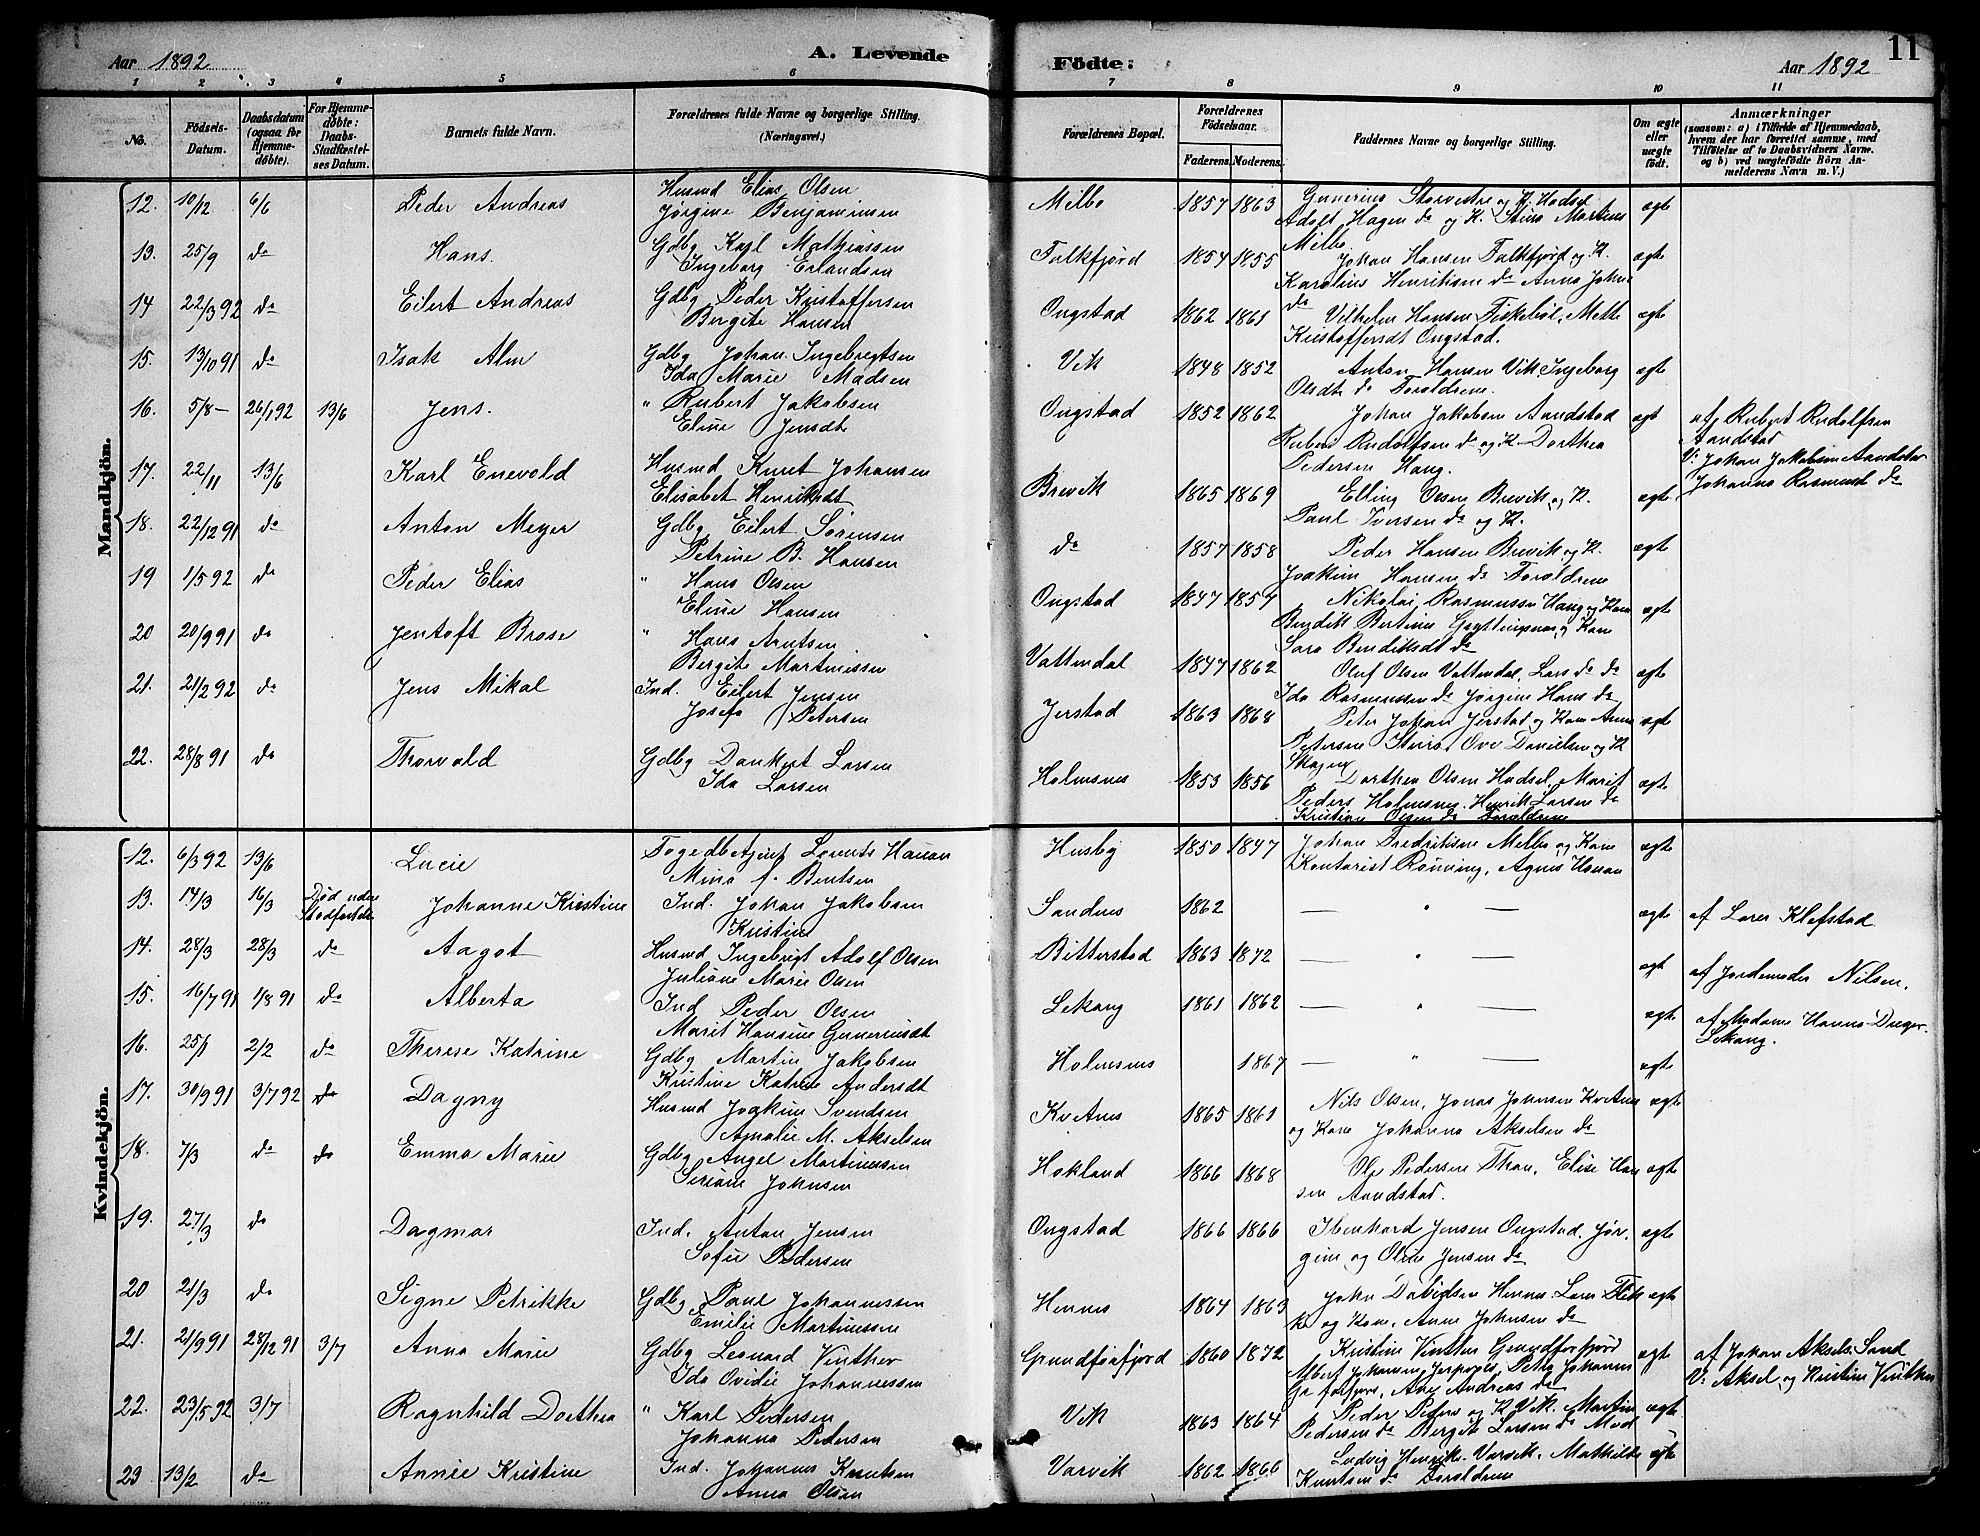 Aar 1892
A. Levende
Födte:
Aar 1892
11
1 2 3 4 5 6 7 8 9 10 11
No.
Födsels-Datum.
Daabsdatum (ogsaa for Hjemme-döbte).
For Hjemme-döbte: Daabs-Stadfæstel-ses Datum.
Barnets fulde Navn.
Forældrenes fulde Navne og borgerlige Stilling. (Næringsvei.)
Forældrenes Bopæl.
Forældrenes Födselsaar.
Faderens. Moderens.
Faddernes Navne og borgerlige Stilling.
Om ægte eller uægte födt.
Anmærkninger
(saasom: a) i Tilfælde af Hjemmedaab, hvem der har forrettet samme, med Tilföielse af to Daabsvidners Navne, og b) ved uægtefödte Börn Anmelderens Navn m. V.)
Mandkjön.
12. 10/12 6/6 Peder Andreas Husmd Elias Olsen Melbo 1857 1863 Gunerius Storvestre og K. Hadsel ægte
Jørgine Benjaminsen Adolf Hagen do og K. Stina Martins
Melbo
13. 25/9 do Hans. Gdbg Karl Mathiassen Falkfjord 1854 1855 Johan Hansen Falkfjord og K. ægte
Ingeborg Erlandsen Karolius Henriksen do Anna Johns
do
14 22/3 92 do Eilert Andreas Gdbg Peder Kristoffersen Ongstad 1862 1861 Vilhelm Hansen Fiskebøl, Mette ægte
Bergite Hansen Kristoffersdt Ongstad.
15. 13/10 91 do Isak Alm Gdbg Johan Ingebregtsen Vik 1848 1852 Anton Hansen Vik, Ingeborg ægte
Ida Marie Madsen Olsdt do Forældrene.
16. 5/8 – 26/1 92 13/6 Jens. " Rubert Jakobsen Ongstad 1852 1862 Johan Jakobsen Aandstad ægt af Rubert Rudolfsen
Eline Jensdt Rubert Rudolfsen do og K. Dorthea Aandstad
Pedersen Haug. V: Johan Jakobsen Aandstad
Johanna Rasmusd do
17. 22/11 13/6 Karl Enevold Husmd Knut Johansen Brevik 1865 1869 Elling Olsen Brevik og K. ægte
Elisabet Henriksdt Paul Iversen do og K.
18. 22/12 91 do Anton Meyer Gdbg Eilert Sørensen do 1857 1858 Peder Hansen Brevik og K. ægte
Petrine B. Hansen Joakim Hansen do Forældrene
19 1/5 92 do Peder Elias " Hans Olsen Ongstad 1847 1854 Nikolai Rasmussen Haug og Kone ægte
Eline Hansen Bendikt Bertines og Kone
Sara Bendiktsdt do
20 20/9 91 do Jentoft Brose " Hans Arntsen Vattendal 1847 1862 Oluf Olsen Vattendal, Lars do do ægte
Bergite Martinissen Ida Rasmussen do Jørgine Hans do
21. 21/2 92 do Jens Mikal Ind. Eilert Jensen Jerstad 1863 1868 Peter Johan Jerstad og Kone Anne ægte
Josefa Petersen Petersen Steiro, Ove Danielsen og K
Skagen
22. 28/8 91 do Thorvald Gdbg Dankert Larsen Holmsnes 1853 1856 Dorthea Olsen Hadsel, Marit ægte
Ida Larsen Peders Holmsnes. Henrik Larsen do
Kristine Olsen do Forældrene
Kvindekjön.
12. 6/3 92 13/6 Lucie Fogedbetjent Lorents Hanan Husby 1850 1847 Johan Fredriksen Melbo og Kone ægte
Mina f. Bentsen Kontorist Rønning, Agnes Hanan
13. 14/3 16/3 Død uden Stadfæstelse Johanne Kristine Ind. Johan Jakobsen Sandnes 1862 — " — ægte af Lars Klefstad
Kristine
14. 28/3 28/3 do Aagot Husmd Ingebrigt Adolf Olsen Bitterstad 1863 1872 — " — ægt af Jordemoder Nilsen.
Juliane Marie Olsen
15. 16/7 91 1/8 91 do Alberta Ind Peder Olsen Lekang 1861 1862 — " — ægte af Madame Hanna Dreyer
Marit Hansine Guneriusdt Lekang.
16. 25/1 2/2 do Therese Katrine Gdbg Martin Jakobsen Holmsnes 1867 — " — ægte
Kristine Katrine Andersdt
17. 30/9 91 3/7 92 do Dagny Husmd Joakim Svendsen KvAnes 1865 1861 Nils Olsen, Jonas Johnsen KvAnes ægte
Amalie M. Akselsen og Kone Johanna Akselsen do
18. 7/3 do do Emma Marie Gdbg Angel Martinussen Hokland 1866 1868 Ole Pedersen Thon, Elise Han ægte
Seriane Johnsen sen Aandstad.
19. 27/3 do Dagmar Ind. Anton Jensen Ongstad 1866 1866 Ibenhard Jensen Ongstad, Jør- ægte
Sofie Pedersen gine og Oline Jensen do
20 21/3 do Signe Petrikke Gdbg Paul Johannessen Hennes 1864 1863 John Davidsen Hennes, Lars Flek ægte
Emilie Martinussen ke og Kone, Anne Johnsen do
21. 21/9 91 28/12 91 3/7 Anna Marie Gdbg Leonard Vinther Grundforfjord 1860 1872 Kristine Vinther Grundforfjord ægte af Johan Aksels. Sand
Ida Ovidie Johannessen Albert Johansen, Petra Johannes V: Aksel og Kristine Vinther
Andreas do
22. 23/5 92 3/7 Ragnhild Dorthea " Karl Pedersen Vik 1863 1864 Peder Peders og K Vik. Martin ægte
Johanna Pedersen Pedersen do Bergit Larsen do Mod
23 13/2 do Annie Kristine Ind. Johannes Knutsen Varvik 1862 1866 Ludvig Henrik. Varvik. Mathilde ægte
Anna Olsen Knutsen do Forældrene